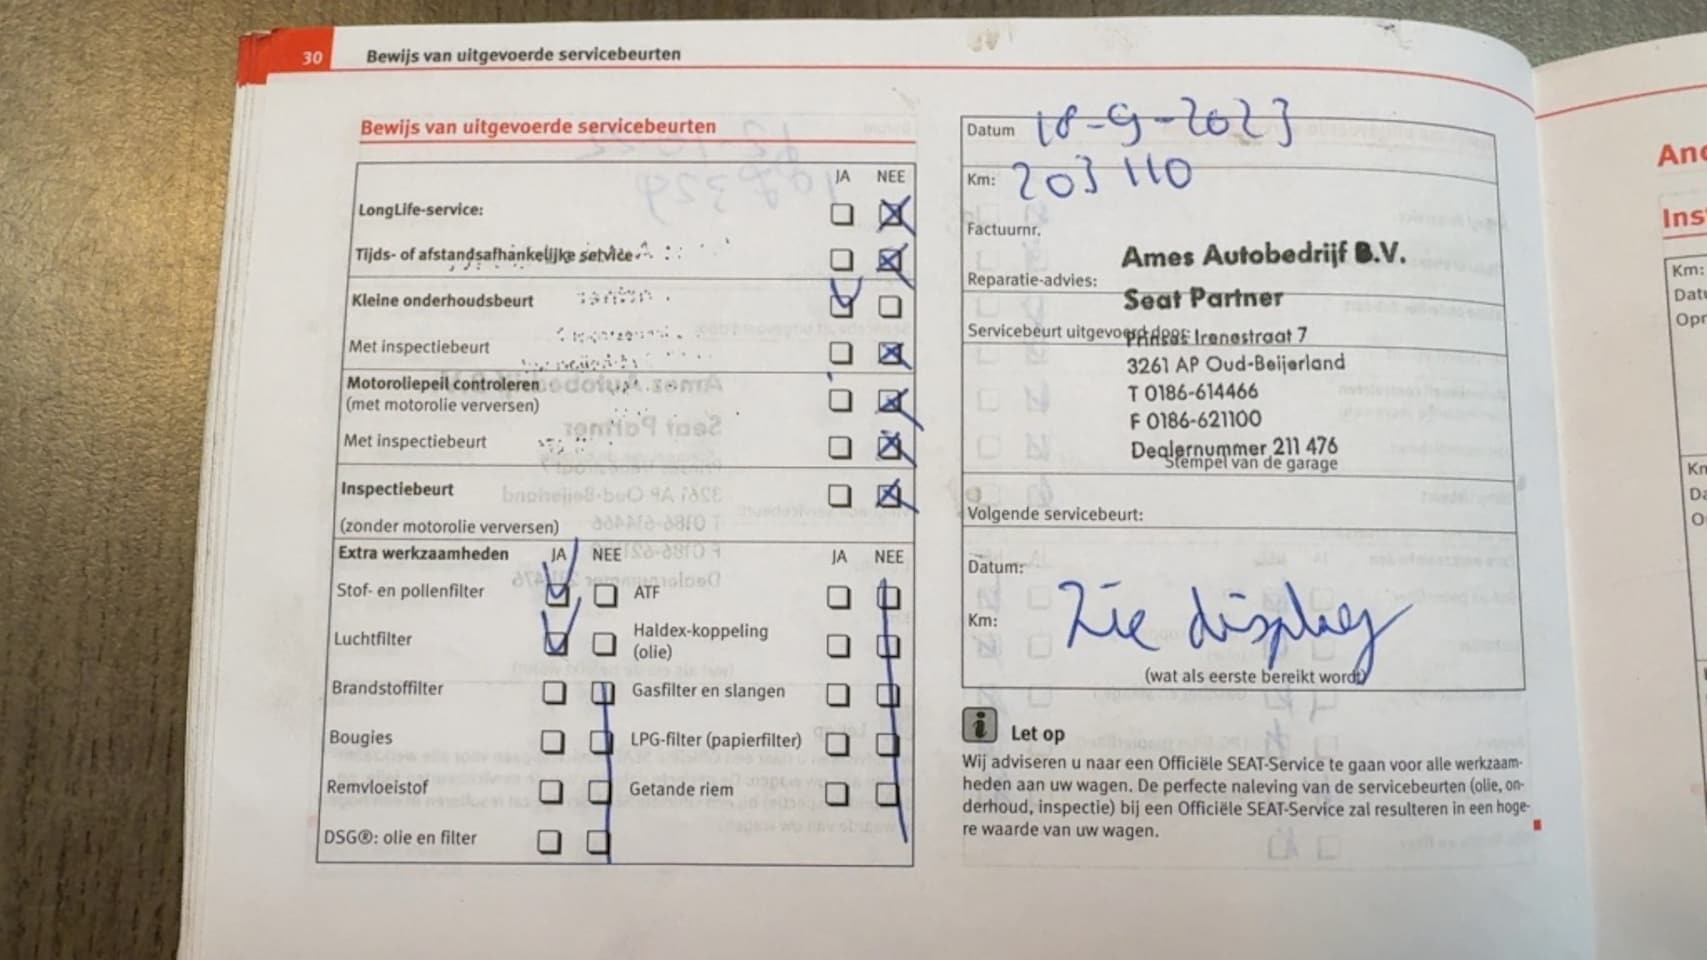 30 Bewijs van uitgevoerde servicebeurten
Bewijs van uitgevoerde servicebeurten
JA NEE
LongLife-service:
Tijds- of afstandsafhankelijke service
Kleine onderhoudsbeurt
Met inspectiebeurt
Motoroliepeil controleren
(met motorolie verversen)
Met inspectiebeurt
Inspectiebeurt
(zonder motorolie verversen)
Extra werkzaamheden JA NEE JA NEE
Stof- en pollenfilter ATF
Luchtfilter Haldex-koppeling
(olie)
Brandstoffilter Gasfilter en slangen
Bougies LPG-filter (papierfilter)
Remvloeistof Getande riem
DSG®: olie en filter
Datum 18-9-2023
Km: 203110
Factuurnr.
Ames Autobedrijf B.V.
Reparatie-advies:
Seat Partner
Servicebeurt uitgevoerd door:
Prinses Irenestraat 7
3261 AP Oud-Beijerland
T 0186-614466
F 0186-621100
Dealernummer 211 476
Stempel van de garage
Volgende servicebeurt:
Datum:
Km: Zie display
(wat als eerste bereikt wordt)
i Let op
Wij adviseren u naar een Officiële SEAT-Service te gaan voor alle werkzaam-
heden aan uw wagen. De perfecte naleving van de servicebeurten (olie, on-
derhoud, inspectie) bij een Officiële SEAT-Service zal resulteren in een hoge-
re waarde van uw wagen.
Km: